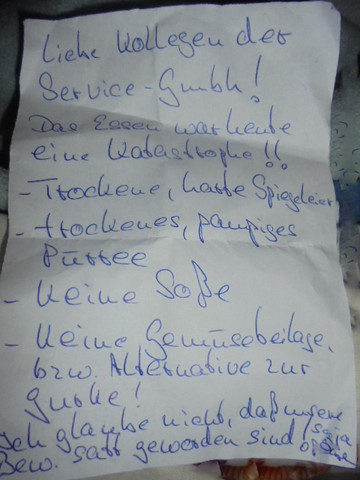 Liebe Kollegen der
Service-GmbH!
Das Essen war heute
eine Katastrophe!!
- Trockene, harte Spiegeleier
- trockenes, pampiges
Püree
- Keine Soße
- Keine Gemüsebeilage,
bzw. Alternative zur
Gurke!
Ich glaube nicht, daß unsere
Bew. satt geworden sind!